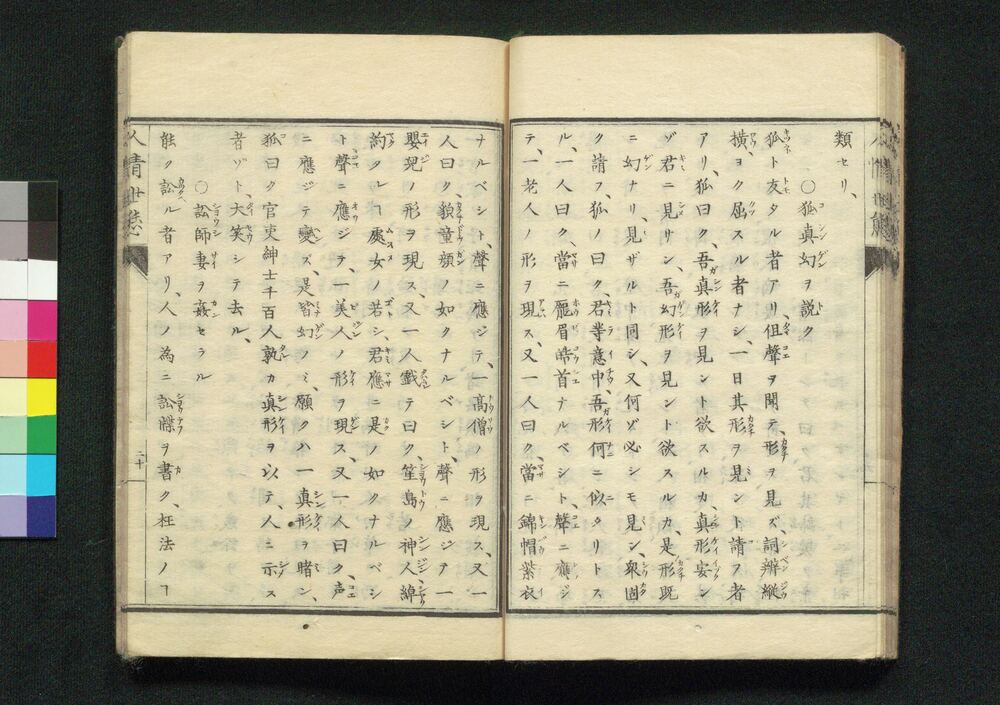 類セリ、
○狐真幻ヲ説ク
狐ト友タル者アリ、但聲ヲ聞テ形ヲ見ズ、詞辨縱
横、ヨク屈スル者ナシ、一日其形ヲ見ント請フ者
アリ、狐曰ク、吾真形ヲ見ント欲スルカ、真形安ン
ゾ君ニ見サン、吾幻形ヲ見ント欲スルカ、是形既
ニ幻ナリ、見ザルト同シ、又何ゾ必シモ見ン、衆固
ク請フ、狐ノ曰ク、君等意中、吾形何ニ似タリトス
ル、一人曰ク、當ニ龐眉皓首ナルベシト、聲ニ應ジ
テ、一老人ノ形ヲ現ス、又一人曰ク、當ニ錦帽紫衣
ナルベシト、聲ニ應ジテ、一高僧ノ形ヲ現ス、又一
人曰ク、貌童顔ノ如クナルベシト、聲ニ應ジテ一
嬰児ノ形ヲ現ス、又一人戲テ曰ク、笙島ノ神人綽
約タルヿ處女ノ若シ、君應ニ是ノ如クナルベシ
ト、聲ニ應ジテ、一美人ノ形ヲ現ス、又一人曰ク、声
ニ應ジテ變ス、是皆幻ノミ、願クハ一真形ヲ睹ン、
狐曰ク官吏紳士千百人孰カ真形ヲ以テ、人ニ示ス
者ゾト、大笑シテ去ル、
○訟師妻ヲ姦セラル
能ク訟ル者アリ、人ノ為ニ訟牒ヲ書ク、枉法ノヿ
人情世態
二十